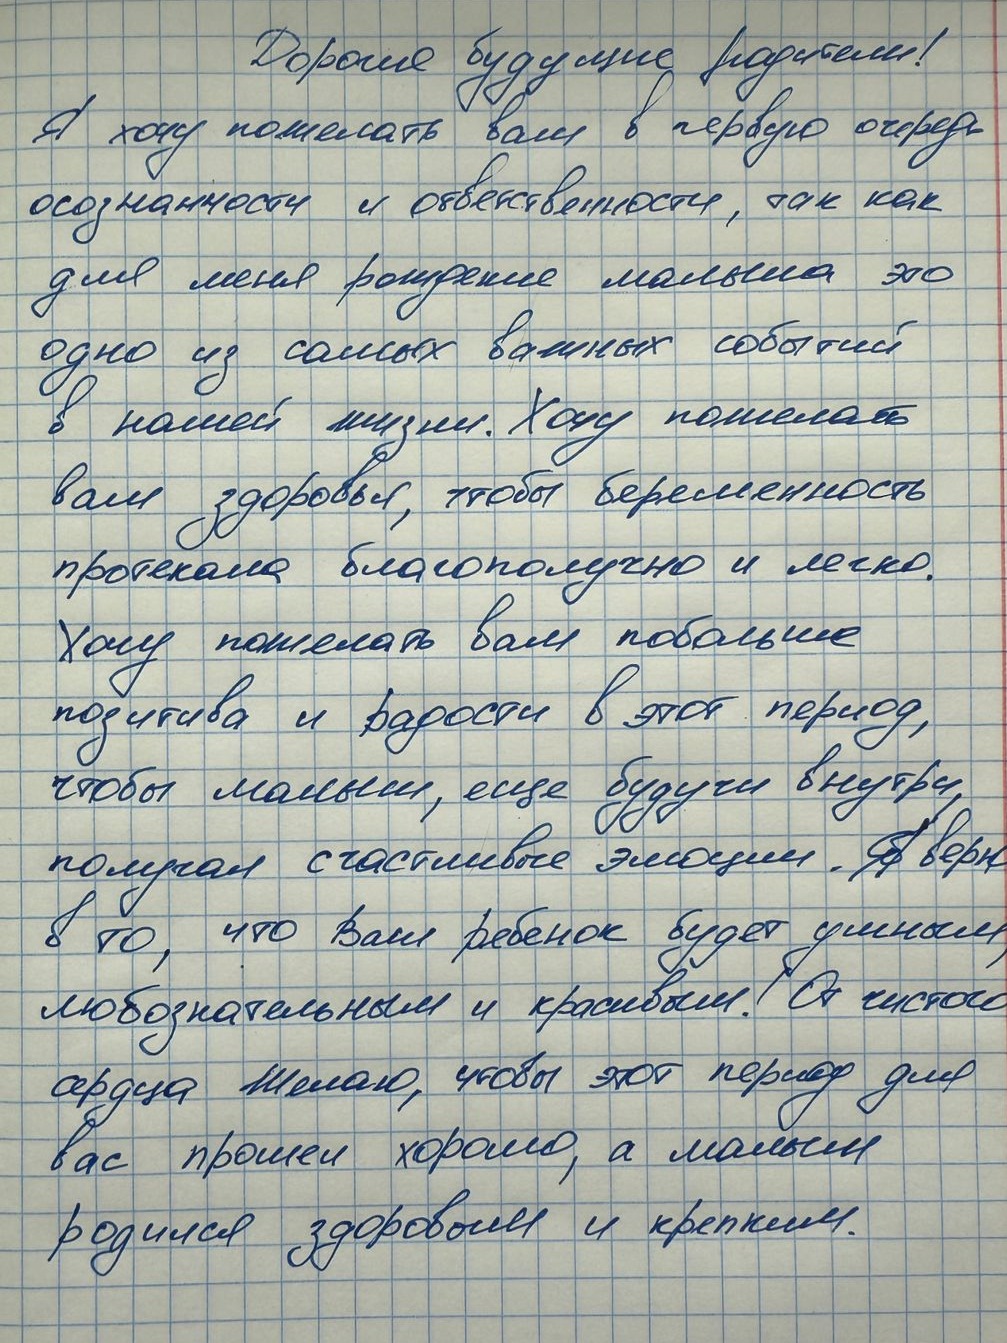 Дорогие будущие родители!
Я хочу пожелать вам в первую очередь
осознанности и ответственности, так как
для меня рождение малыша это
одно из самых важных событий
в нашей жизни. Хочу пожелать
вам здоровья, чтобы беременность
протекала благополучно и легко.
Хочу пожелать вам побольше
позитива и радости в этот период,
чтобы малыш, еще будучи внутри,
получал счастливые эмоции. Я верю
в то, что Ваш ребенок будет умным,
любознательным и красивым! От чистого
сердца желаю, чтобы этот период для
вас прошел хорошо, а малыш
родился здоровым и крепким.